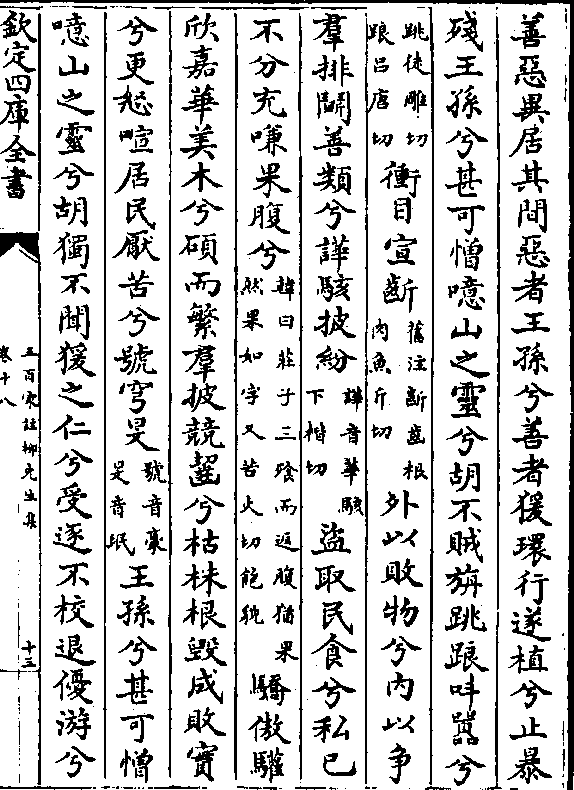 善惡異居其間惡者王孫兮善者猨環行遂植兮止暴
殘王孫兮甚可憎噫山之靈兮胡不賊旃跳踉叫囂兮
跳徒雕切踉吕唐切衝目宣齗舊注齗齒根肉魚斤切外以敗物兮内以争
羣排鬬善類兮譁駭披紛譁音華駭下楷切盜取民食兮私已
不分充嗛果腹兮韓曰莊子三飡而返腹猶果然果如字又苦火切飽貌驕傲驩
欣嘉華美木兮碩而繁羣披競齧兮枯株根毁成敗實
兮更怒喧居民厭苦兮號穹旻號音豪旻音珉王孫兮甚可憎
噫山之靈兮胡獨不聞猨之仁兮受逐不校退優游兮
欽定四庫全書
五百家註柳先生集
卷十八
十三